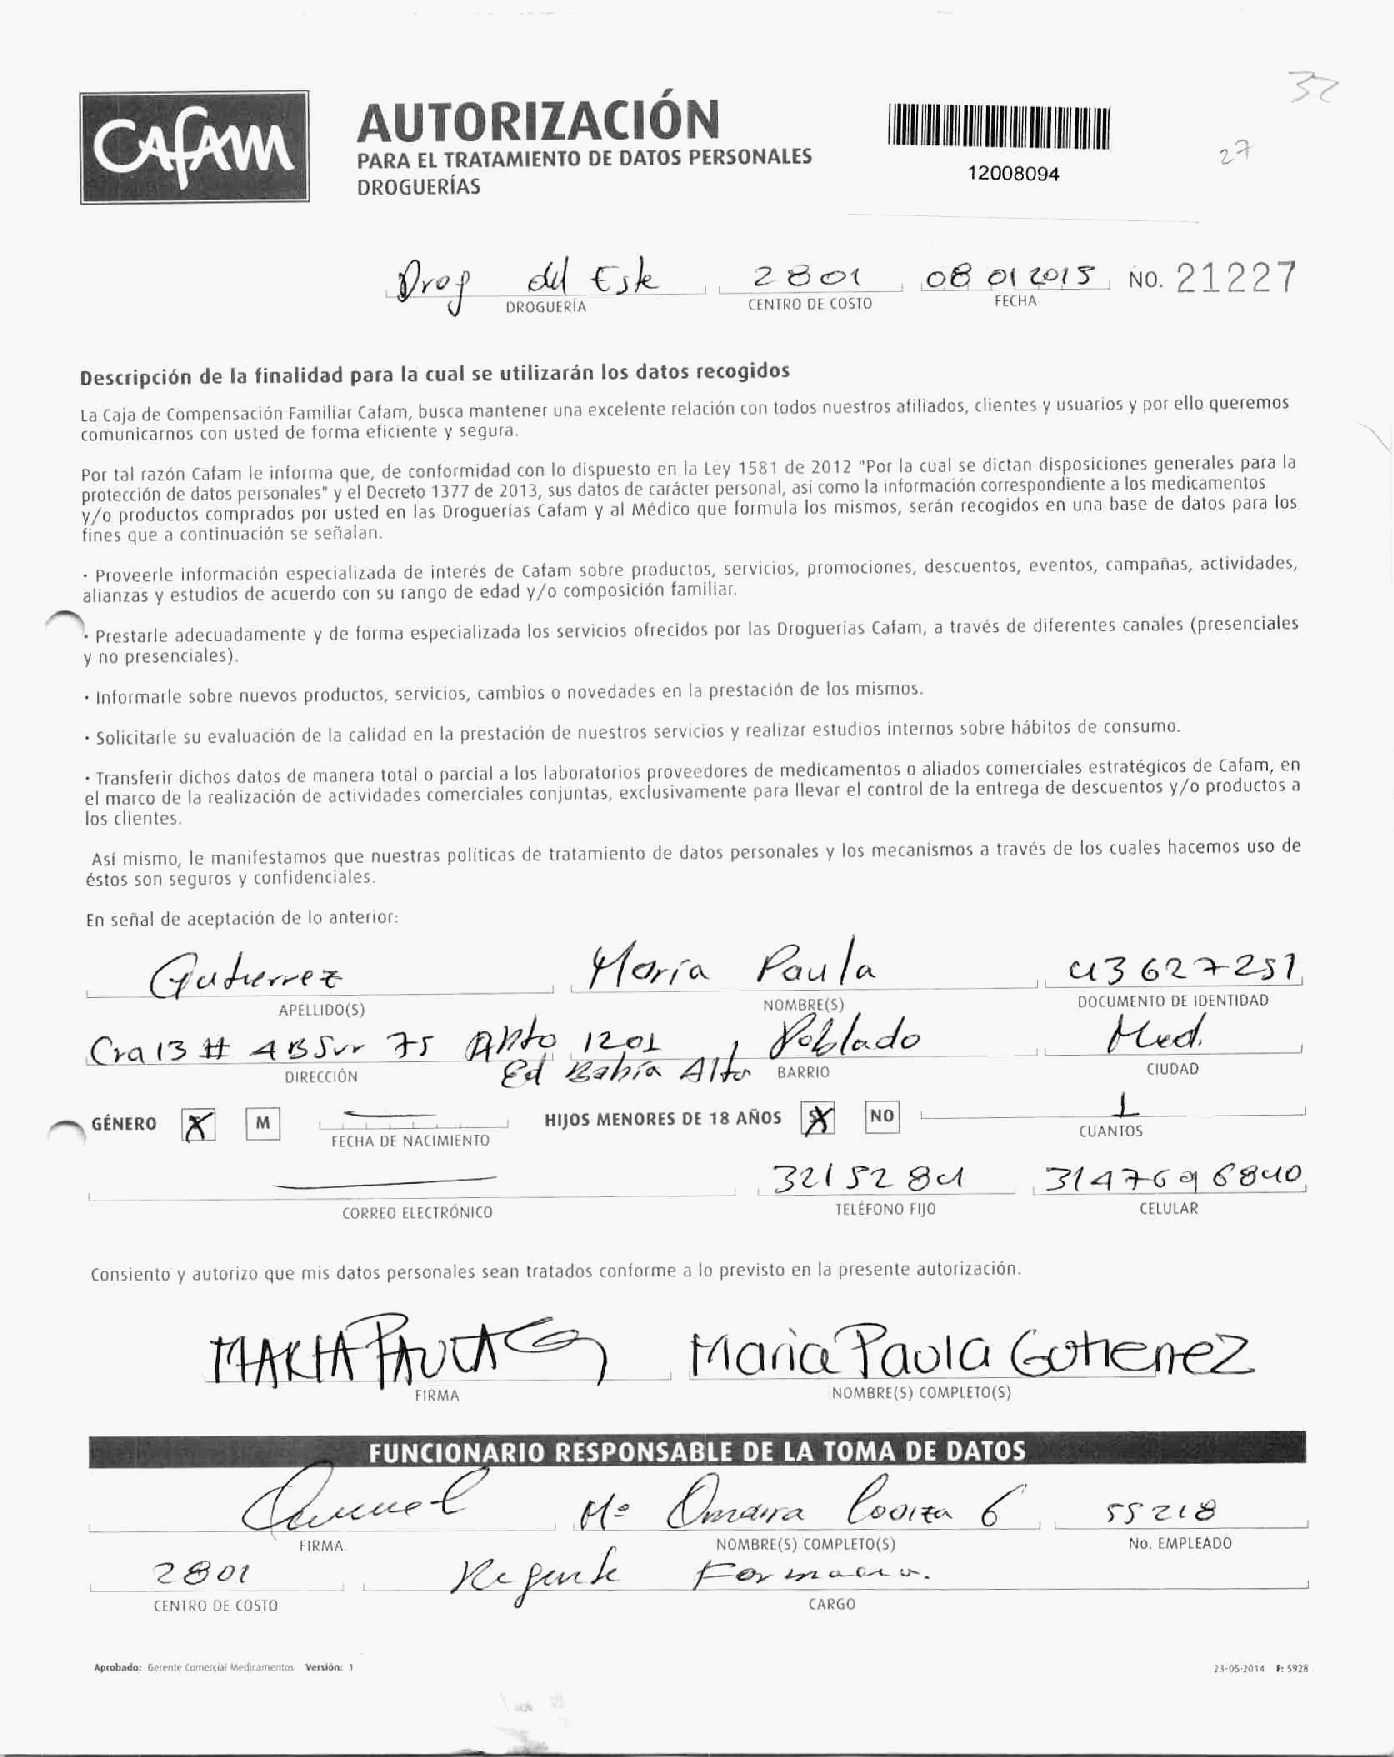 32
27
CAFAM
AUTORIZACIÓN
PARA EL TRATAMIENTO DE DATOS PERSONALES
DROGUERÍAS
12008094
Drog del Este 2801 08 01 2015 NO. 21227
DROGUERÍA CENTRO DE COSTO FECHA
Descripción de la finalidad para la cual se utilizarán los datos recogidos
La Caja de Compensación Familiar Cafam, busca mantener una excelente relación con todos nuestros afiliados, clientes y usuarios y por ello queremos
comunicarnos con usted de forma eficiente y segura.
Por tal razón Cafam le informa que, de conformidad con lo dispuesto en la Ley 1581 de 2012 "Por la cual se dictan disposiciones generales para la
protección de datos personales" y el Decreto 1377 de 2013, sus datos de carácter personal, así como la información correspondiente a los medicamentos
y/o productos comprados por usted en las Droguerías Cafam y al Médico que formula los mismos, serán recogidos en una base de datos para los
fines que a continuación se señalan.
· Proveerle información especializada de interés de Cafam sobre productos, servicios, promociones, descuentos, eventos, campañas, actividades,
alianzas y estudios de acuerdo con su rango de edad y/o composición familiar.
· Prestarle adecuadamente y de forma especializada los servicios ofrecidos por las Droguerías Cafam, a través de diferentes canales (presenciales
y no presenciales).
· Informarle sobre nuevos productos, servicios, cambios o novedades en la prestación de los mismos.
· Solicitarle su evaluación de la calidad en la prestación de nuestros servicios y realizar estudios internos sobre hábitos de consumo.
· Transferir dichos datos de manera total o parcial a los laboratorios proveedores de medicamentos o aliados comerciales estratégicos de Cafam, en
el marco de la realización de actividades comerciales conjuntas, exclusivamente para llevar el control de la entrega de descuentos y/o productos a
los clientes.
Así mismo, le manifestamos que nuestras políticas de tratamiento de datos personales y los mecanismos a través de los cuales hacemos uso de
éstos son seguros y confidenciales.
En señal de aceptación de lo anterior:
Gutierrez Maria Paula 43627251
APELLIDO(S) NOMBRE(S) DOCUMENTO DE IDENTIDAD
Cra 13 # 4B Sur 75 Apto 1201 Poblado Med.
Ed Bahía Alta
DIRECCIÓN BARRIO CIUDAD
GÉNERO X M HIJOS MENORES DE 18 AÑOS X NO 1
FECHA DE NACIMIENTO CUANTOS
3215284 3147696840
CORREO ELECTRÓNICO TELÉFONO FIJO CELULAR
Consiento y autorizo que mis datos personales sean tratados conforme a lo previsto en la presente autorización.
MARIA PAULA G Maria Paula Gutierrez
FIRMA NOMBRE(S) COMPLETO(S)
FUNCIONARIO RESPONSABLE DE LA TOMA DE DATOS
Mª Omaira Loaiza G 55218
FIRMA NOMBRE(S) COMPLETO(S) No. EMPLEADO
2801 Regente Farmacia.
CENTRO DE COSTO CARGO
Aprobado: Gerente Comercial Medicamentos Versión: 1 23-05-2014 F: 5928